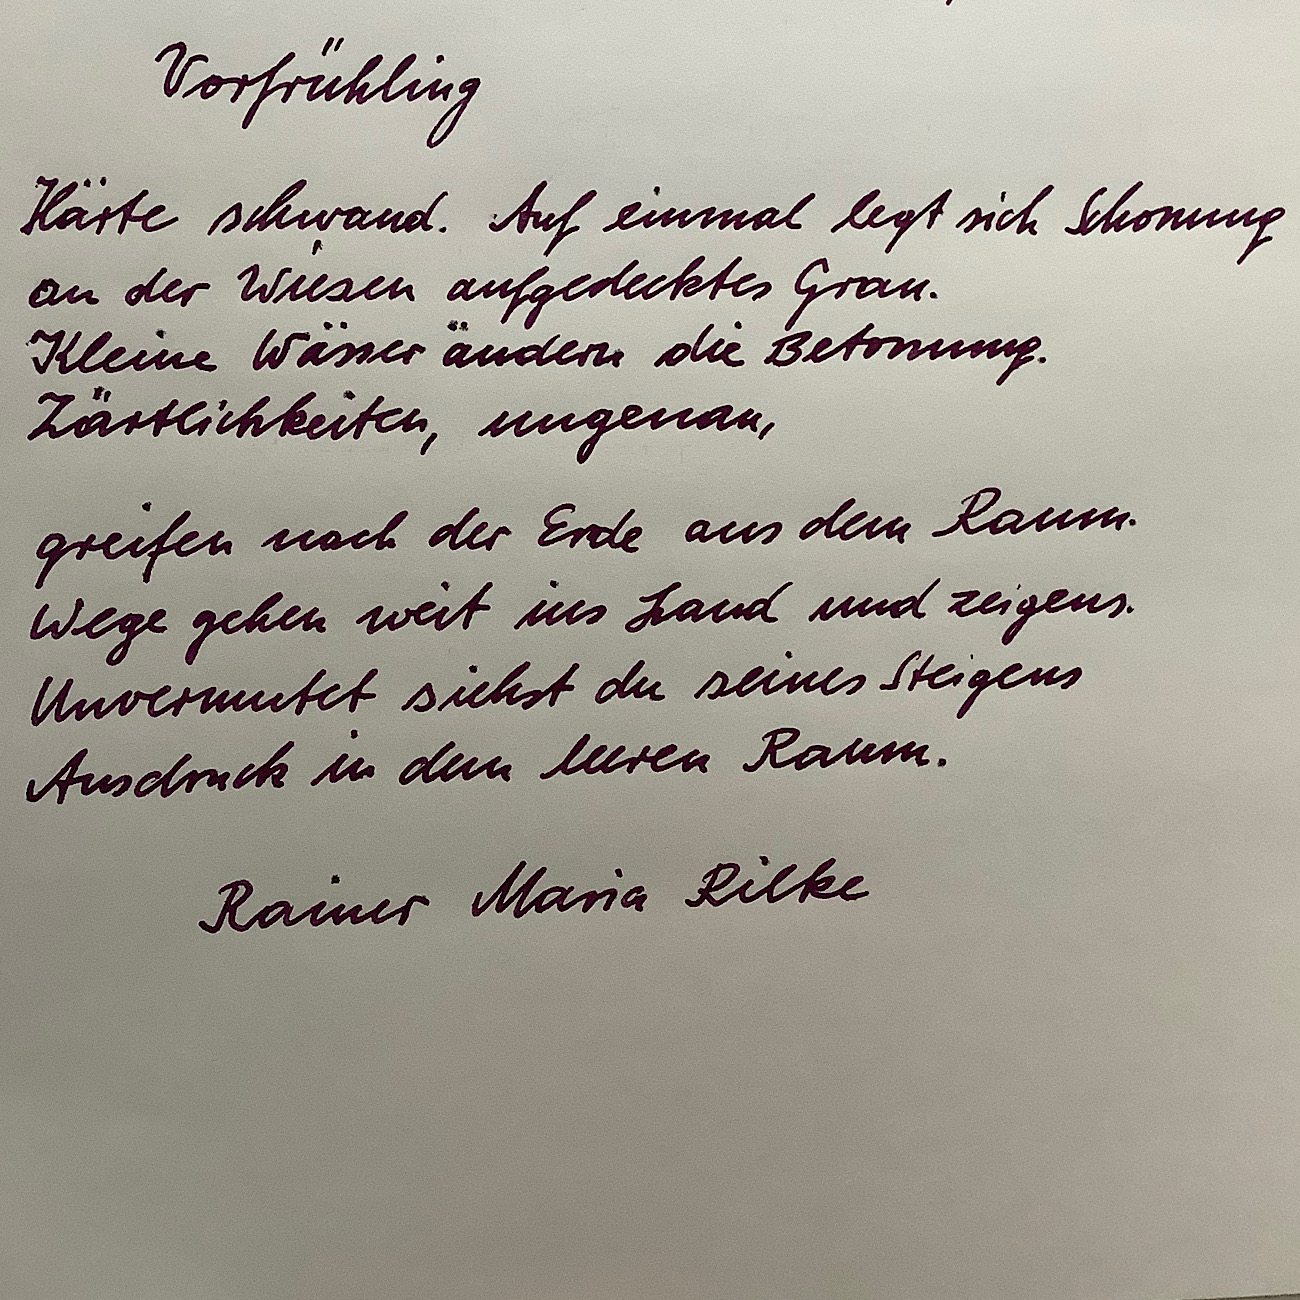 Vorfrühling
Härte schwand. Auf einmal legt sich Schonung
an der Wiesen aufgedecktes Grau.
Kleine Wässer ändern die Betonung.
Zärtlichkeiten, ungenau,
greifen nach der Erde aus dem Raum.
Wege gehen weit ins Land und zeigens.
Unvermutet siehst du seines Steigens
Ausdruck in dem leeren Raum.
Rainer Maria Rilke